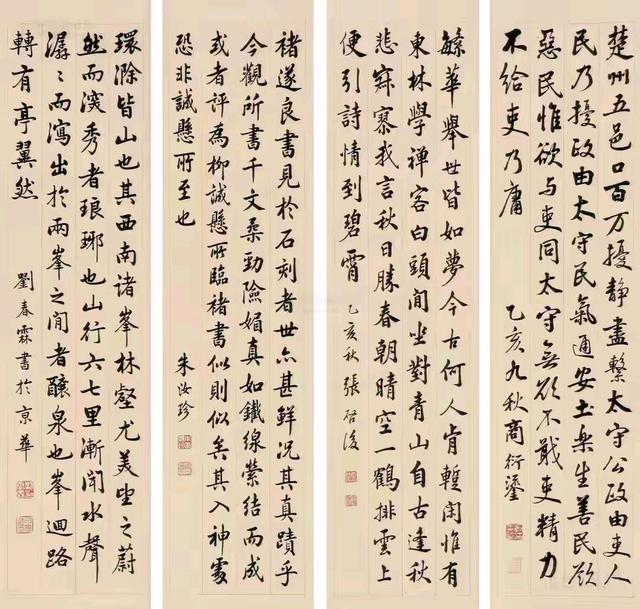 楚州五邑口百万擾静盡繫太守公政由吏人
民乃擾政由太守民氣通安土樂生善民欲
惡民惟欲与吏同太守無欲不戢吏精力
不給吏乃庸
乙亥九秋商衍鎏
繁華舉世皆如夢今古何人肯暫閑惟有
東林學禪客白頭閒坐對青山自古逢秋
悲寂寥我言秋日勝春朝晴空一鶴排雲上
便引詩情到碧霄
乙亥秋張啓後
褚遂良書見於石刻者世亦甚鮮況其真蹟乎
今觀所書千文柔勁險媚真如鐵線縈结而成
或者評為柳誠懸所臨褚書似則似矣其入神處
恐非誠懸所至也
朱汝珍
環滁皆山也其西南诸峯林壑尤美望之蔚
然而深秀者琅琊也山行六七里漸聞水聲
潺〻而瀉出於兩峯之间者釀泉也峯迴路
轉有亭翼然
劉春霖書於京華